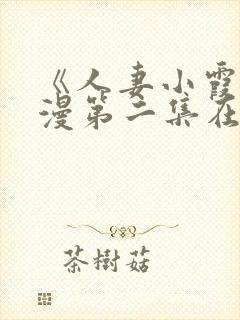 《人妻小霞
漫第二集在
茶樹菇